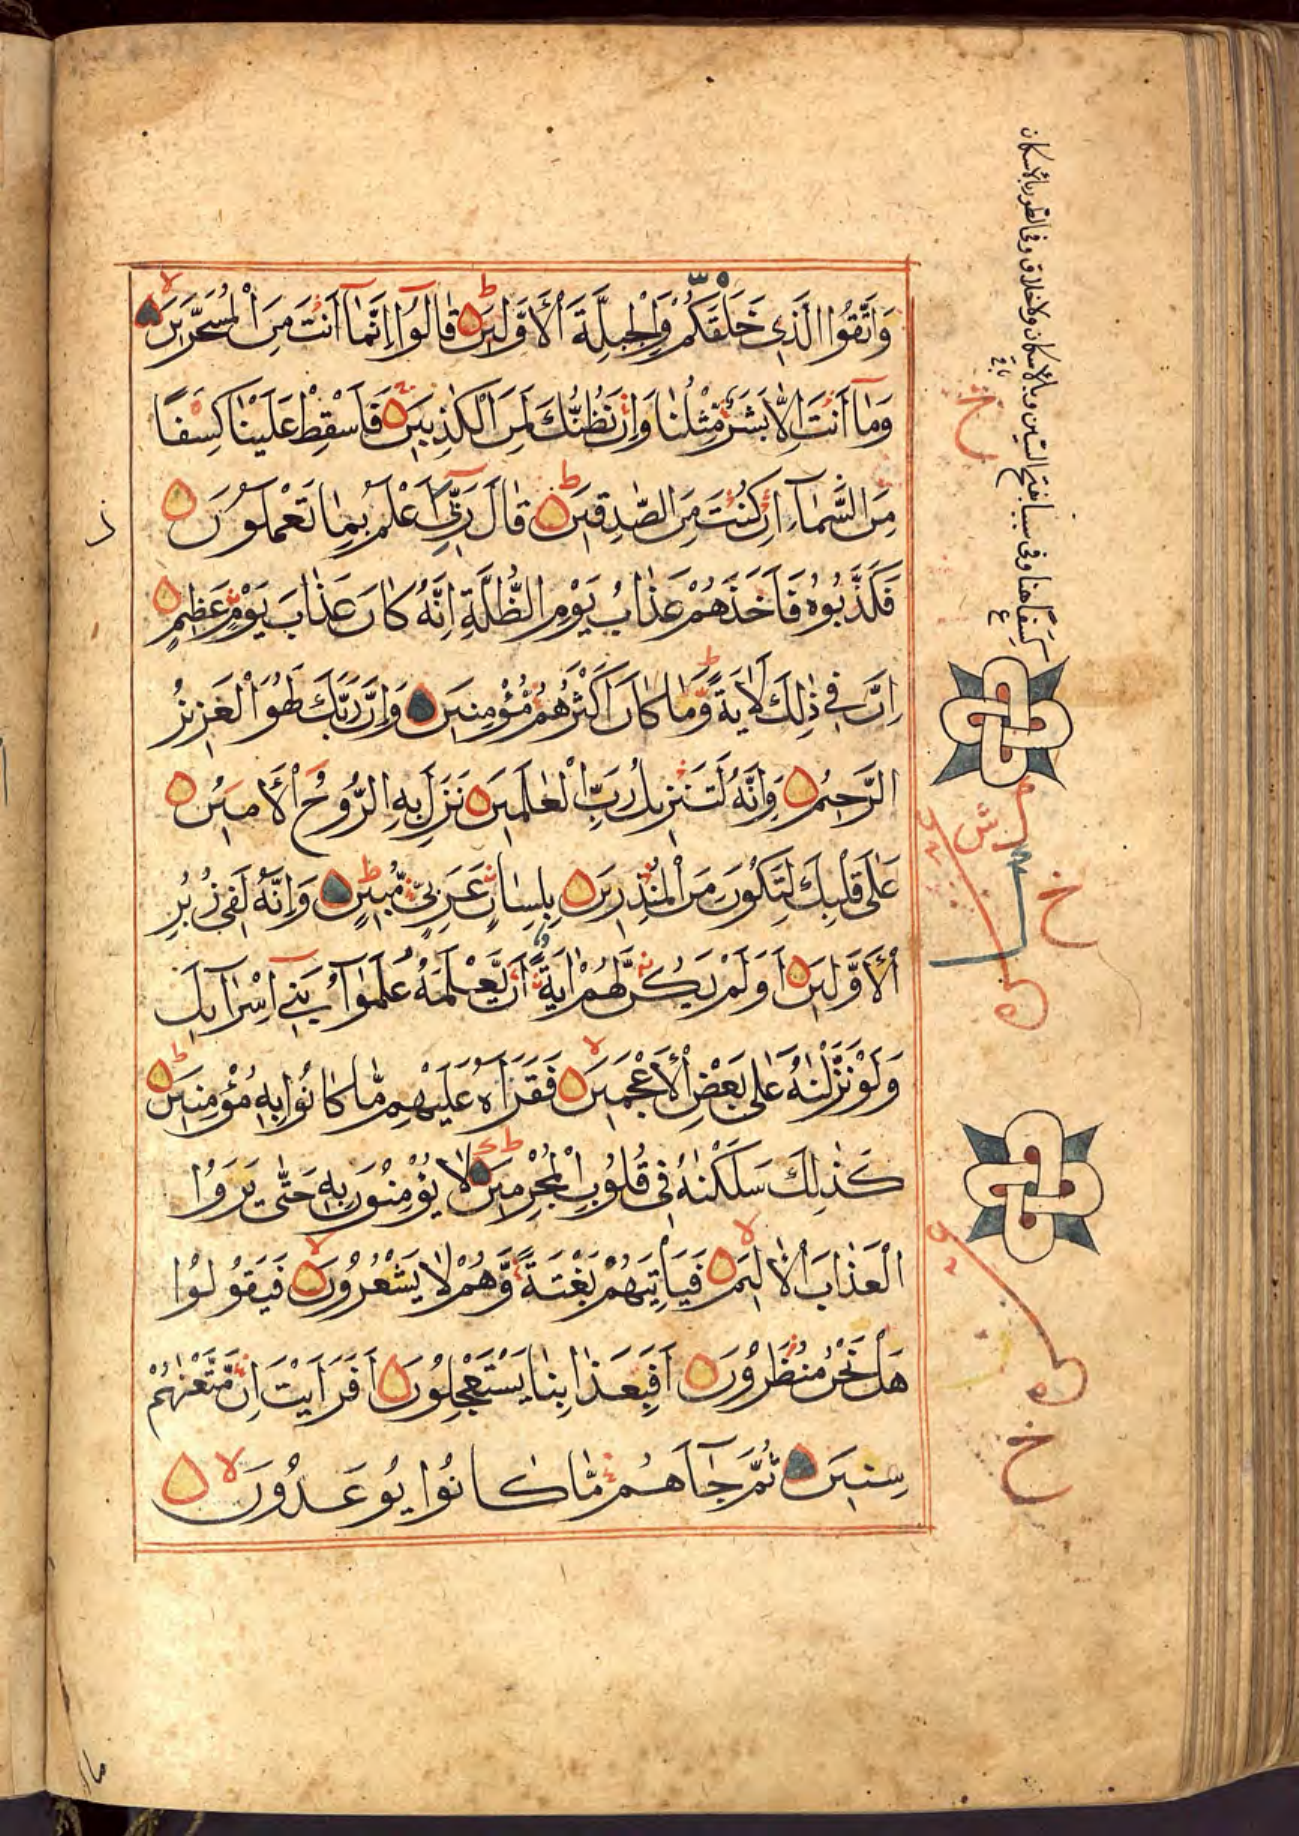 وَاتَّقُوا الَّذِي خَلَقَكُمْ وَالْجِبِلَّةَ الْأَوَّلِينَ قَالُوا إِنَّمَا أَنْتَ مِنَ الْمُسَحَّرِينَ
وَمَا أَنْتَ إِلَّا بَشَرٌ مِثْلُنَا وَإِنْ نَظُنُّكَ لَمِنَ الْكٰذِبِينَ فَأَسْقِطْ عَلَيْنَا كِسَفًا
مِنَ السَّمَاءِ إِنْ كُنْتَ مِنَ الصّٰدِقِينَ قَالَ رَبِّي أَعْلَمُ بِمَا تَعْمَلُونَ
فَكَذَّبُوهُ فَأَخَذَهُمْ عَذَابُ يَوْمِ الظُّلَّةِ إِنَّهُ كَانَ عَذَابَ يَوْمٍ عَظِيمٍ
إِنَّ فِي ذٰلِكَ لَآيَةً وَمَا كَانَ أَكْثَرُهُمْ مُؤْمِنِينَ وَإِنَّ رَبَّكَ لَهُوَ الْعَزِيزُ
الرَّحِيمُ وَإِنَّهُ لَتَنْزِيلُ رَبِّ الْعٰلَمِينَ نَزَلَ بِهِ الرُّوحُ الْأَمِينُ
عَلَى قَلْبِكَ لِتَكُونَ مِنَ الْمُنْذِرِينَ بِلِسَانٍ عَرَبِيٍّ مُبِينٍ وَإِنَّهُ لَفِي زُبُرِ
الْأَوَّلِينَ أَوَلَمْ يَكُنْ لَهُمْ آيَةً أَنْ يَعْلَمَهُ عُلَمٰؤُا بَنِي إِسْرَآئِيلَ
وَلَوْ نَزَّلْنٰهُ عَلَى بَعْضِ الْأَعْجَمِينَ فَقَرَأَهُ عَلَيْهِمْ مَا كَانُوا بِهِ مُؤْمِنِينَ
كَذٰلِكَ سَلَكْنٰهُ فِي قُلُوبِ الْمُجْرِمِينَ لَا يُؤْمِنُونَ بِهِ حَتَّى يَرَوُا
الْعَذَابَ الْأَلِيمَ فَيَأْتِيَهُمْ بَغْتَةً وَهُمْ لَا يَشْعُرُونَ فَيَقُولُوا
هَلْ نَحْنُ مُنْظَرُونَ أَفَبِعَذَابِنَا يَسْتَعْجِلُونَ أَفَرَأَيْتَ إِنْ مَتَّعْنٰهُمْ
سِنِينَ ثُمَّ جَآءَهُمْ مَا كَانُوا يُوعَدُونَ
كسفا هنا وفى سبا بفتح السين وبالاسكان ولا خلاف وفى الطور بالاسكان